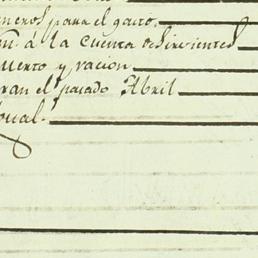 neros para el gasto
á la cuenta de Sirvientes
uerto y racion
ran el pasado Abril